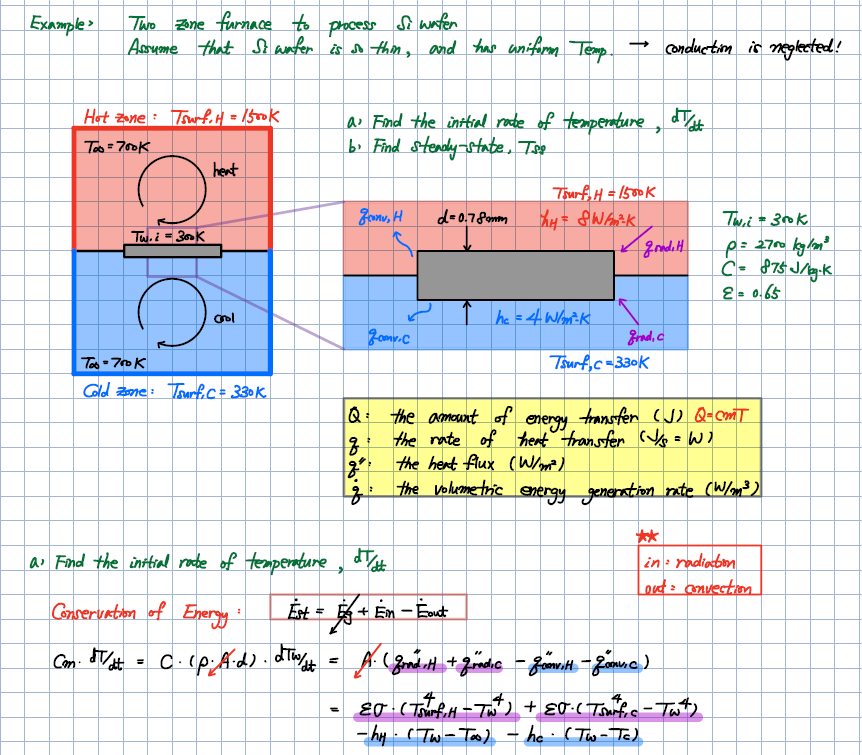 Example> Two zone furnace to process Si wafer
Assume that Si wafer is so thin, and has uniform Temp. → conduction is neglected!
Hot zone : Tsurf,H = 1500K
T∞ = 700K
heat
Tw,i = 300K
cool
T∞ = 700K
Cold zone : Tsurf,C = 330K
a) Find the initial rate of temperature, dT/dt
b) Find steady-state, Tss
Tsurf,H = 1500K
qconv,H
d = 0.78mm
hH = 8 W/m²·K
qrad,H
hc = 4 W/m²·K
qconv,C
qrad,C
Tsurf,C = 330K
Tw,i = 300K
ρ = 2700 kg/m³
C = 875 J/kg·K
ε = 0.65
Q : the amount of energy transfer (J) Q=cmT
q : the rate of heat transfer (J/s = W)
q" : the heat flux (W/m²)
q̇ : the volumetric energy generation rate (W/m³)
a) Find the initial rate of temperature, dT/dt
**
in : radiation
out : convection
Conservation of Energy : Ėst = Ėg + Ėin - Ėout
Cm · dT/dt = C · (ρ·A·d) · dTw/dt = A · (q"rad,H + q"rad,C - q"conv,H - q"conv,C)
= εσ · (T⁴surf,H - Tw⁴) + εσ · (T⁴surf,C - Tw⁴)
- hH · (Tw - T∞) - hc · (Tw - Tc)